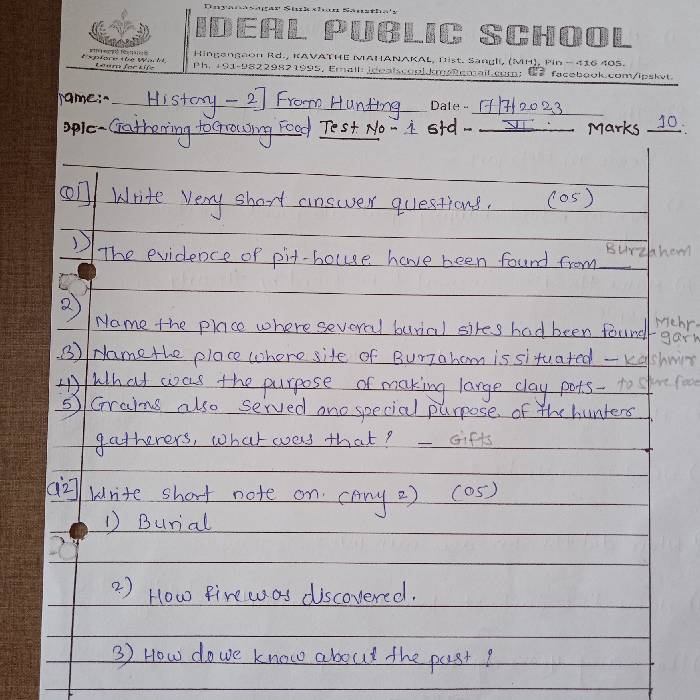 Dnyanasagar Shikshan Sanstha's
IDEAL PUBLIC SCHOOL
Explore the World,
Learn for Life
Hingangaon Rd., KAVATHE MAHANAKAL, Dist. Sangli, (MH), Pin - 416 405.
Ph. +91-98229821995, Email: facebook.com/ipskvt.
ame:- History - 2] From Hunting Date - 17/7/2023
opic- Gathering to Growing Food Test No - 1 std - VI Marks 10.
Q1] Write Very short answer questions. (05)
1) The evidence of pit-house have been found from Burzahom
2) Name the place where several burial sites had been found- Mehr-
garh
3) Name the place where site of Burzahom is situated - Kashmir
4) What was the purpose of making large clay pots - to store food
5) Grains also served one special purpose of the hunters
gatherers, what was that? - Gifts
Q2] Write short note on. (Any 2) (05)
1) Burial
2) How fire was discovered.
3) How do we know about the past ?